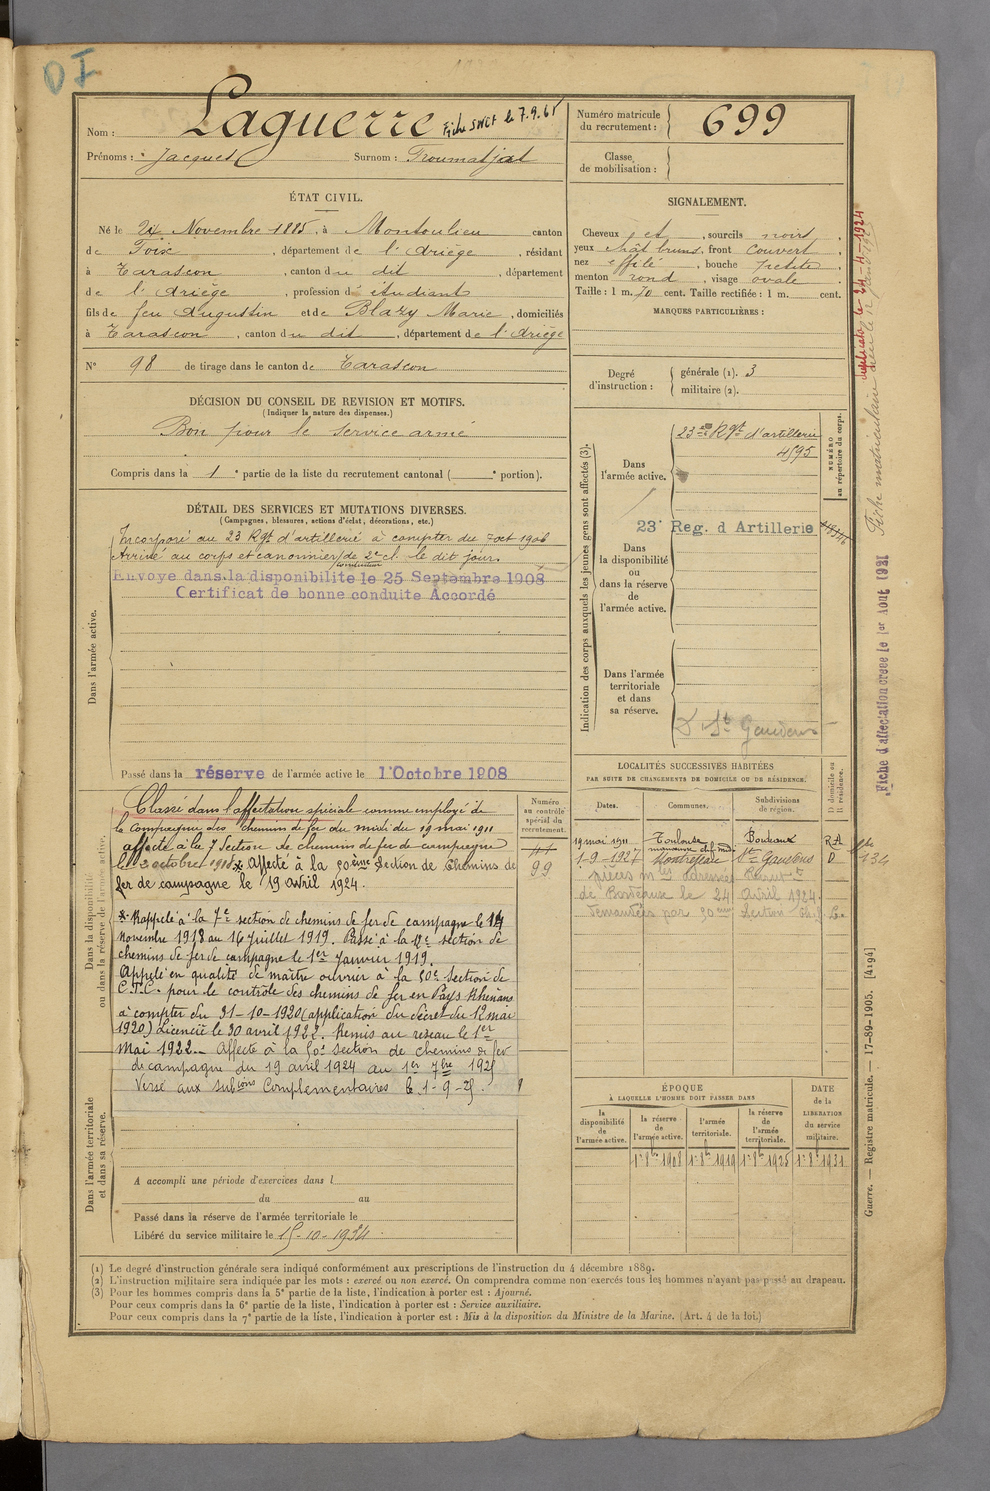 OI
Nom : Laguerre Fiche SNCF le 7.9.61
Prénoms : Jacques Surnom : Troumatjat
Numéro matricule du recrutement : 699
Classe de mobilisation :
ÉTAT CIVIL.
Né le 24 Novembre 1885, à Montoulieu canton
de Foix, département de l'Ariège, résidant
à Tarascon, canton du dit, département
de l'Ariège, profession d' étudiant
fils de feu Augustin et de Blazy Marie, domiciliés
à Tarascon, canton du dit, département de l'Ariège
N° 98 de tirage dans le canton de Tarascon
DÉCISION DU CONSEIL DE REVISION ET MOTIFS.
(Indiquer la nature des dispenses.)
Bon pour le service armé
Compris dans la 1 e partie de la liste du recrutement cantonal ( e portion).
SIGNALEMENT.
Cheveux et, sourcils noirs,
yeux chât bruns, front couvert,
nez effilé, bouche petite,
menton rond, visage ovale.
Taille : 1 m. 70 cent. Taille rectifiée : 1 m. cent.
MARQUES PARTICULIÈRES :
Degré d'instruction : générale (1). 3
militaire (2).
DÉTAIL DES SERVICES ET MUTATIONS DIVERSES.
(Campagnes, blessures, actions d'éclat, décorations, etc.)
Dans l'armée active.
Incorporé au 23 Rgt d'artillerie à compter du 7 oct 1906
Arrivé au corps et canonnier conducteur de 2e cl. le dit jour.
Envoye dans la disponibilite le 25 Septembre 1908
Certificat de bonne conduite Accordé
Passé dans la réserve de l'armée active le 1 Octobre 1908
Indication des corps auxquels les jeunes gens sont affectés (3).
NUMÉRO au répertoire du corps.
Dans l'armée active.
23e Rgt d'artillerie
4595
23e Reg. d Artillerie
Dans la disponibilité ou dans la réserve de l'armée active.
Dans l'armée territoriale et dans sa réserve.
D. St Gaudens
Dans la disponibilité ou dans la réserve de l'armée active.
Classé dans l'affectation spéciale comme employé de
la compagnie des chemins de fer du midi du 19 mai 1911
affecté à la 7 Section de chemins de fer de campagne
le octobre 1918 x Affecté à la 50ème Section de Chemins de
fer de campagne le 19 avril 1924.
x Rappelé à la 7e section de chemins de fer de campagne le 14
novembre 1918 au 16 juillet 1919. Passé à la section de
chemins de fer de campagne le 1er janvier 1919.
Appelé en qualité de maître ouvrier à la 50e section de
C.F.C. pour le contrôle des chemins de fer en Pays Rhénans
à compter du 31-10-1920 (application du décret du 12 mai
1920) Licencié le 30 avril 1922. Remis au réseau le 1er
mai 1922. Affecté à la 50e section de chemins de fer
de campagne du 19 avril 1924 au 1er 7bre 1925
Versé aux subons Complementaires le 1-9-25.
Numéro au contrôle spécial du recrutement.
99
LOCALITÉS SUCCESSIVES HABITÉES
PAR SUITE DE CHANGEMENTS DE DOMICILE OU DE RÉSIDENCE.
D. domicile ou R. résidence.
Dates. Communes. Subdivisions de région.
19 mai 1911 Toulouse Bordeaux R.A
1-9-1927 Montréjeau St Gaudens D.
pièces mles adressées Recrut
de Bordeaux le 24 Avril 1924
demandées par 50eme Section
Dans l'armée territoriale et dans sa réserve.
A accompli une période d'exercices dans l
du au
Passé dans la réserve de l'armée territoriale le
Libéré du service militaire le 15-10-1934
ÉPOQUE
À LAQUELLE L'HOMME DOIT PASSER DANS
la disponibilité de l'armée active.
la réserve de l'armée active.
l'armée territoriale.
la réserve de l'armée territoriale.
DATE de la LIBÉRATION du service militaire.
1er 8bre 1908 1er 8bre 1919 1er 8bre 1925 1er 8bre 1931
(1) Le degré d'instruction générale sera indiqué conformément aux prescriptions de l'instruction du 4 décembre 1889.
(2) L'instruction militaire sera indiquée par les mots : exercé ou non exercé. On comprendra comme non exercés tous les hommes n'ayant pas passé au drapeau.
(3) Pour les hommes compris dans la 5e partie de la liste, l'indication à porter est : Ajourné.
Pour ceux compris dans la 6e partie de la liste, l'indication à porter est : Service auxiliaire.
Pour ceux compris dans la 7e partie de la liste, l'indication à porter est : Mis à la disposition du Ministre de la Marine. (Art. 4 de la loi.)
duplicata le 24-4-1924
Fiche matriculaire
Fiche d'affectation créée le 1er Aout 1931
Guerre. — Registre matricule. — 17-89-1905. [4194]